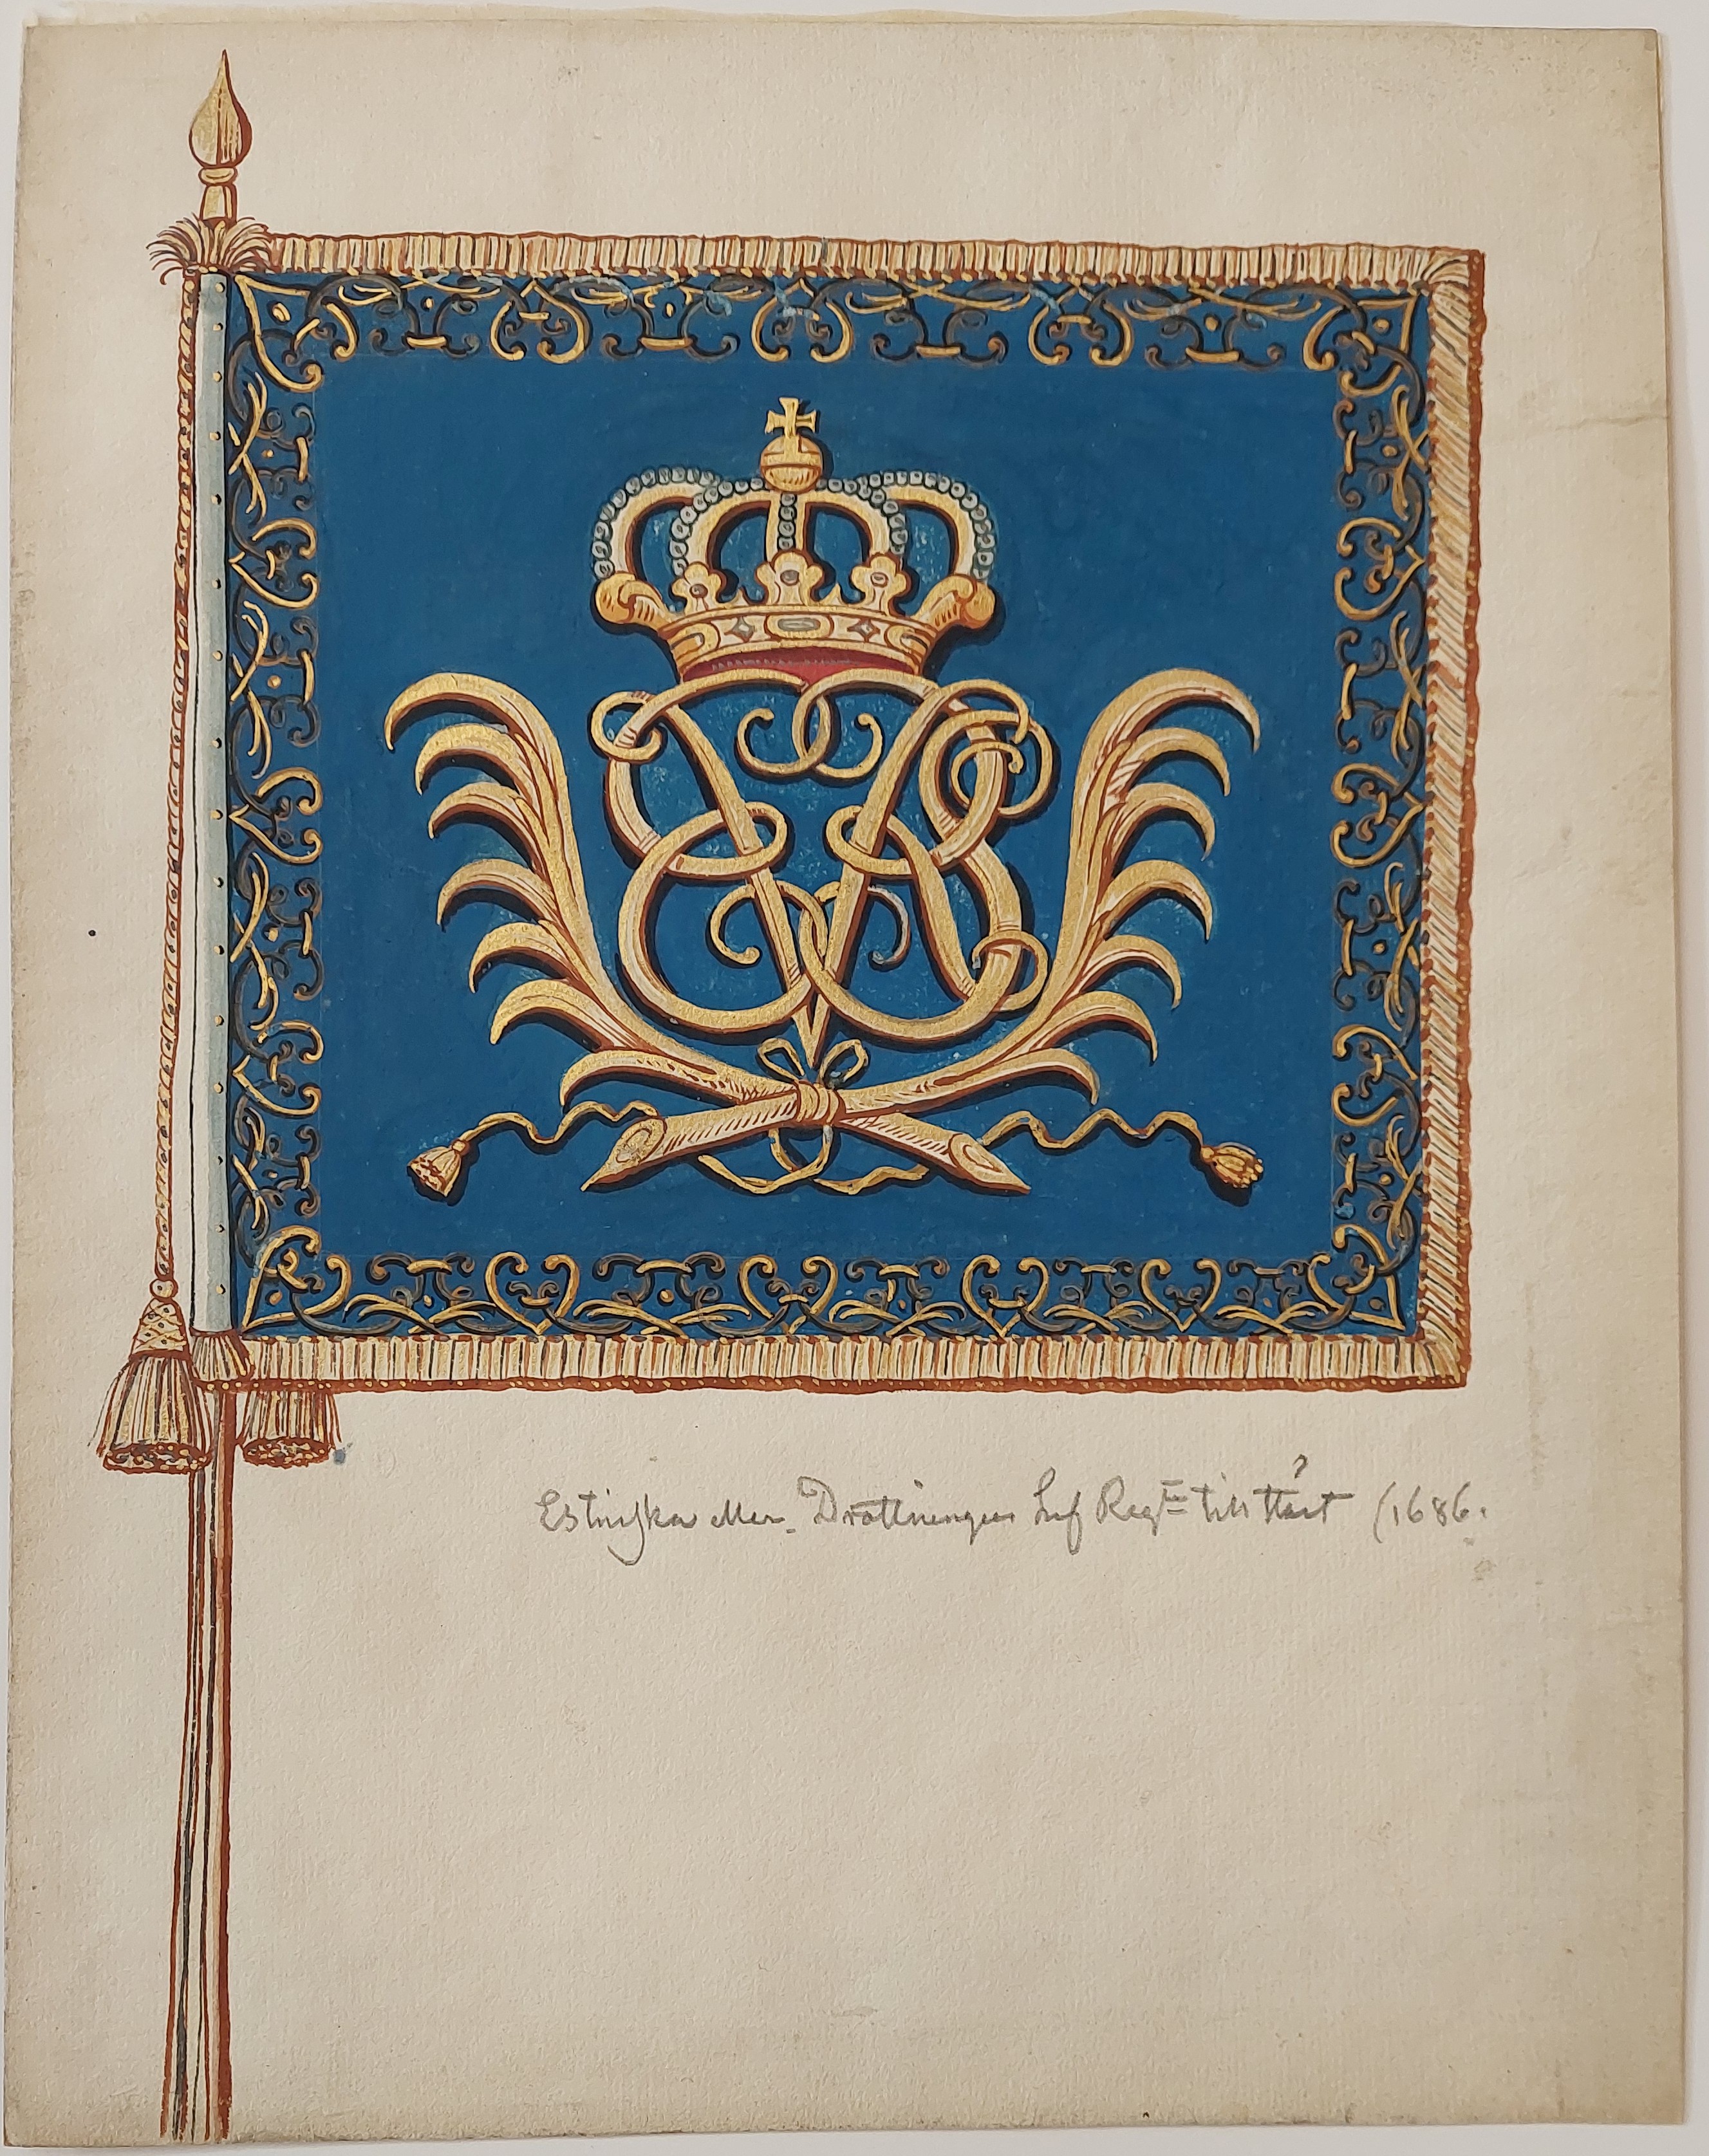 Estniska eller Drottningens Lif Regte till häst (1686.